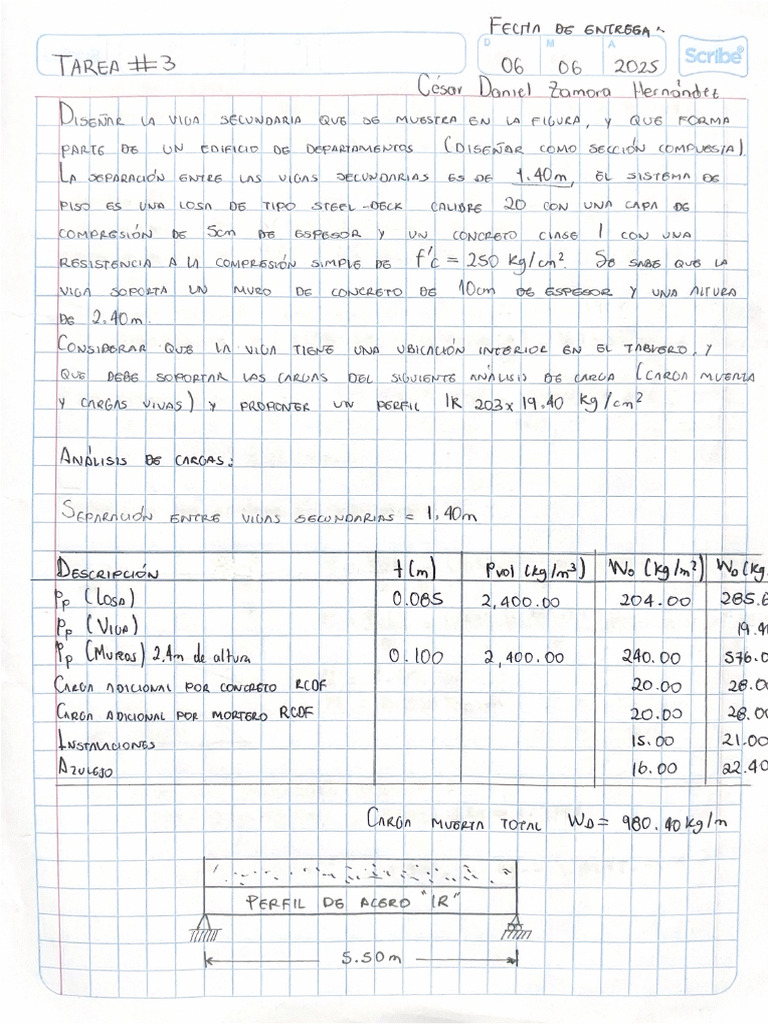 FECHA DE ENTREGA:
D M A
TAREA #3
06 06 2025
Scribe®
César Daniel Zamora Hernández
DISEÑAR LA VIGA SECUNDARIA QUE SE MUESTRA EN LA FIGURA, Y QUE FORMA
PARTE DE UN EDIFICIO DE DEPARTAMENTOS (DISEÑAR COMO SECCIÓN COMPUESTA).
LA SEPARACIÓN ENTRE LAS VIGAS SECUNDARIAS ES DE 1.40m, EL SISTEMA DE
PISO ES UNA LOSA DE TIPO STEEL-DECK CALIBRE 20 CON UNA CAPA DE
COMPRESIÓN DE 5cm DE ESPESOR Y UN CONCRETO CLASE 1 CON UNA
RESISTENCIA A LA COMPRESIÓN SIMPLE DE f'c = 250 kg/cm². SE SABE QUE LA
VIGA SOPORTA UN MURO DE CONCRETO DE 10cm DE ESPESOR Y UNA ALTURA
DE 2.40m.
CONSIDERAR QUE LA VIGA TIENE UNA UBICACIÓN INTERIOR EN EL TABLERO, Y
QUE DEBE SOPORTAR LAS CARGAS DEL SIGUIENTE ANÁLISIS DE CARGA (CARGA MUERTA
Y CARGAS VIVAS) Y PROPONER UN PERFIL IR 203 x 19.40 kg/cm²
ANÁLISIS DE CARGAS:
SEPARACIÓN ENTRE VIGAS SECUNDARIAS = 1.40m
DESCRIPCIÓN t(m) Pvol (kg/m³) WD (kg/m²) WD (kg
Pp (LOSA) 0.085 2,400.00 204.00 285.6
Pp (VIGA) 19.4
Pp (MUROS) 2.4m de altura 0.100 2,400.00 240.00 576.0
CARGA ADICIONAL POR CONCRETO RCDF 20.00 28.00
CARGA ADICIONAL POR MORTERO RCDF 20.00 28.00
INSTALACIONES 15.00 21.00
AZULEJO 16.00 22.40
CARGA MUERTA TOTAL WD = 980.40 kg/m
PERFIL DE ACERO "IR"
5.50m